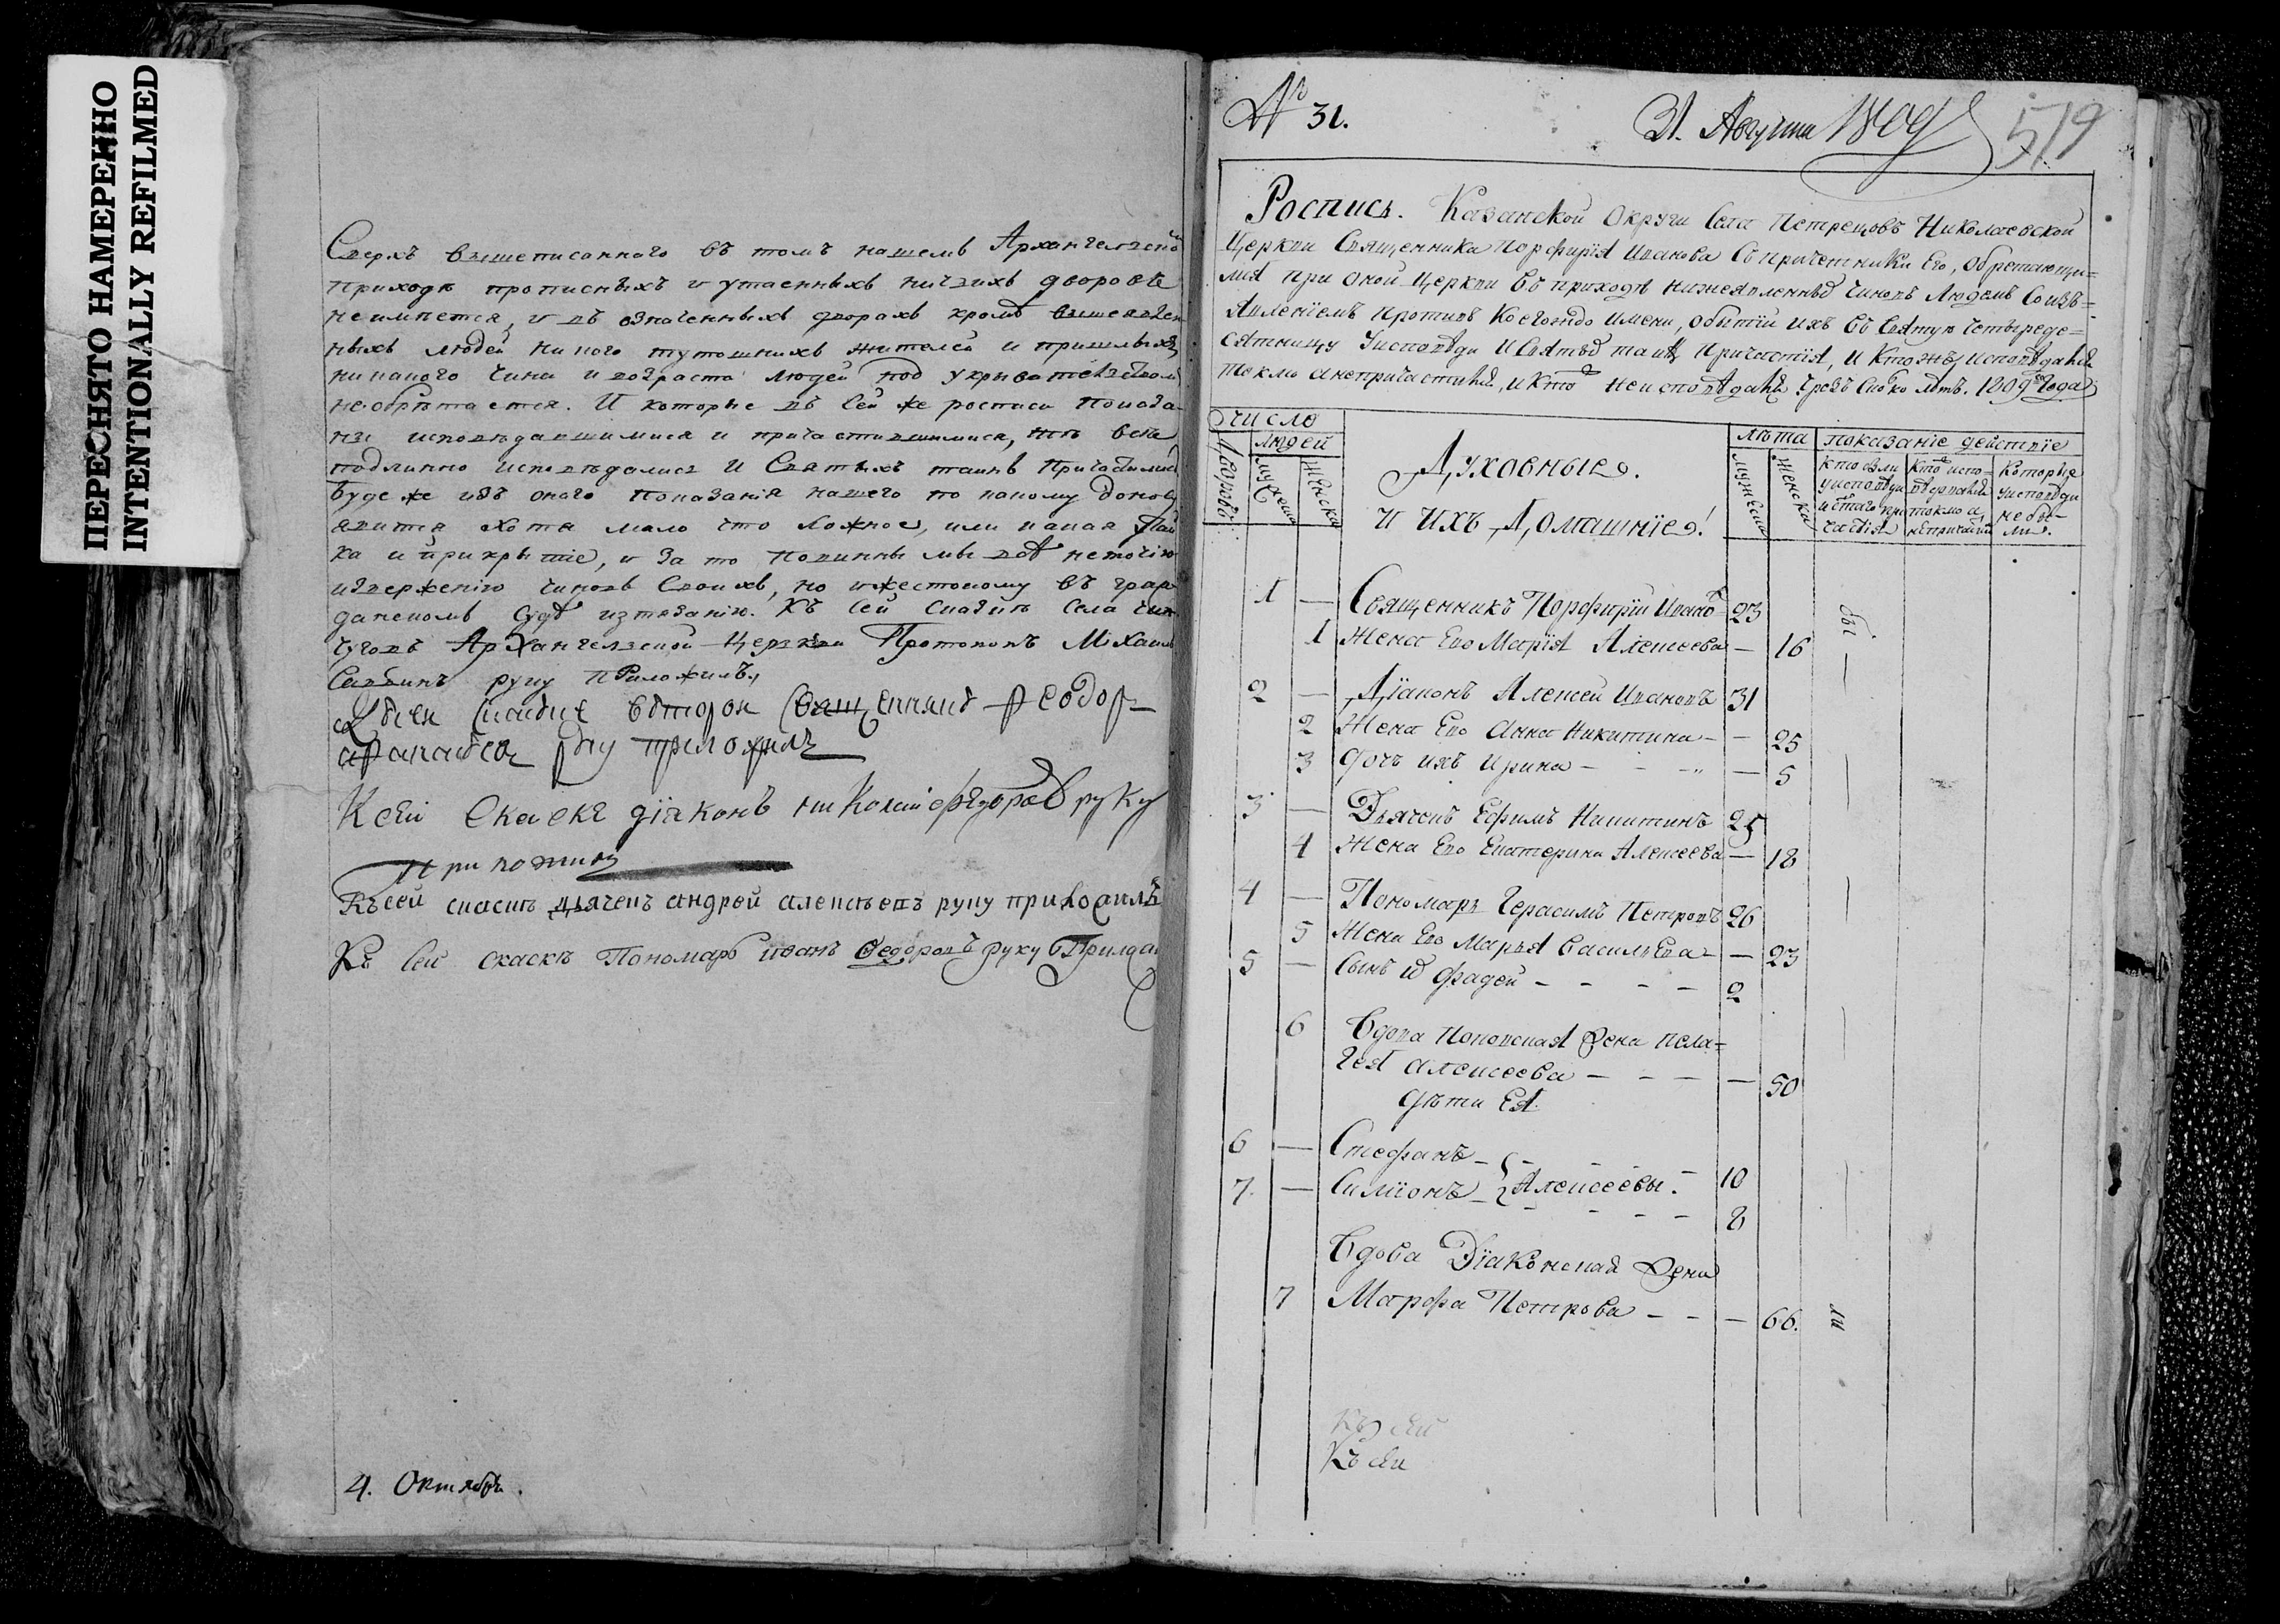 ПЕРЕСНЯТО НАМЕРЕННО
INTENTIONALLY REFILMED
Сверхъ вышеписанного въ томъ нашемъ Архангелской
приходѣ прописныхъ и утаенныхъ ничьихъ дворовъ
неимѣется, и въ означенныхъ дворахъ кромѣ вышеявлен
ныхъ людей никого тутошнихъ жителей и пришлыхъ
никакого чина и возраста людей под укрывателствомъ
необрѣтается. И которые въ сей же росписи показа
ны исповѣдавшимися и причастившимися, тѣ всѣ
подлинно исповѣдались и Святыхъ таинъ причастились
буде же изъ оного показанія нашего по какому доносу
явится хотя мало что ложное, или какая Утай
ка и прикрытіе, и За то повинны мы всѣ неточію
изверженію чиновъ своихъ, но и жестокому въ граж
данскомъ судѣ изтязанію. Къ сей сказкѣ села
Архангелской Церкви Протопопъ Михаилъ
руку Приложилъ.
Къ сей скаске второй Священникъ Феодор
руку приложилъ
Ксей Скаске діаконъ Николай Федоровъ руку
Приложилъ
Къ сей скаскѣ дьячекъ андрей алексѣевъ руку приложилъ
Къ сей скаскѣ Пономарь иванъ Федоровъ руку Прилож
4. Октября.
№ 31.
31. Августа 1809
519
Роспись. Казанской Округи Села Петрецовъ Николаевской
Церкви Священника Порфирія Иванова Съ причетники Его, обретающи=
мися при оной Церкви въ приходѣ нижеявленныхъ чиновъ Людемъ Со изъ=
явленіемъ противъ Коегождо имени, о бытіи ихъ въ Святую четыреде=
сятницу У исповѣди и Святыхъ таинъ Причастія, и Ктожъ исповѣдался
токмо а не причастился, и Кто не исповѣдался чрезъ сколко лѣтъ. 1809го Года
Число
Людей
Дворовъ
Мужеска
Женска
Духовные.
и ихъ Домашніе!
Лѣта
Мужеска
Женска
показаніе действіе
кто были у исповѣди и стаго причастія
Кто исповѣдался токмо а непричастился
Которые у исповѣди небыли.
1 — Священникъ Порфирій Ивановъ 23 бы
1 Жена Его Марія Алексеева — 16
2 — Діаконъ Алексей Ивановъ 31
2 Жена Его Анна Никитина — 25
3 Дочь ихъ Ирина — 5
3 — Дьячекъ Ефимъ Никитинъ 25
4 Жена Его Екатерина Алексеева — 18
4 — Пономарь Герасимъ Петровъ 26
5 Жена Его Марья Васильева — 23
5 — Сынъ их Фадей — — — — 2
6 Вдова Поповская Жена пела=
гея алексеева — — — — 50
Дѣти Ея.
6 — Стефанъ — 10
7. — Симіонъ — Алексеевы. — 8
Вдова Діаконская Жена
7 Марфа Петрова — — — 66. ли
Къ сей
Къ сей